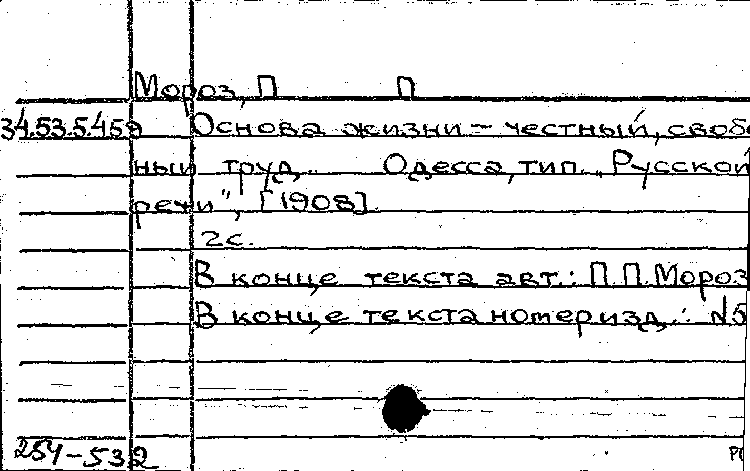 Мороз, П П
34.53.5.459 Основа жизни – честный, своб
ный труд. Одесса, тип. „Русской
речи", [1908].
2с.
В конце текста авт.: П.П.Мороз
В конце текста номер изд.: №5
254-532